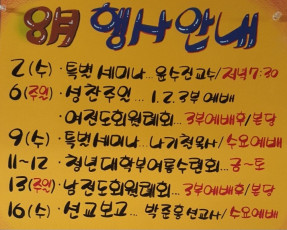 8월 행사안내
2 (수) · 특별세미나... 윤수진교수/저녁7:30
6 (주일) · 성찬주일 ... 1.2.3부예배
· 여전도회월례회... 3부예배후/본당
9 (수) · 특별세미나... 나기철목사/수요예배
11~12 · 청년대학부여름수련회... 금~토
13 (주일) · 남전도회월례회... 3부예배후/본당
16 (수) · 선교보고 ... 박준홍선교사/수요예배